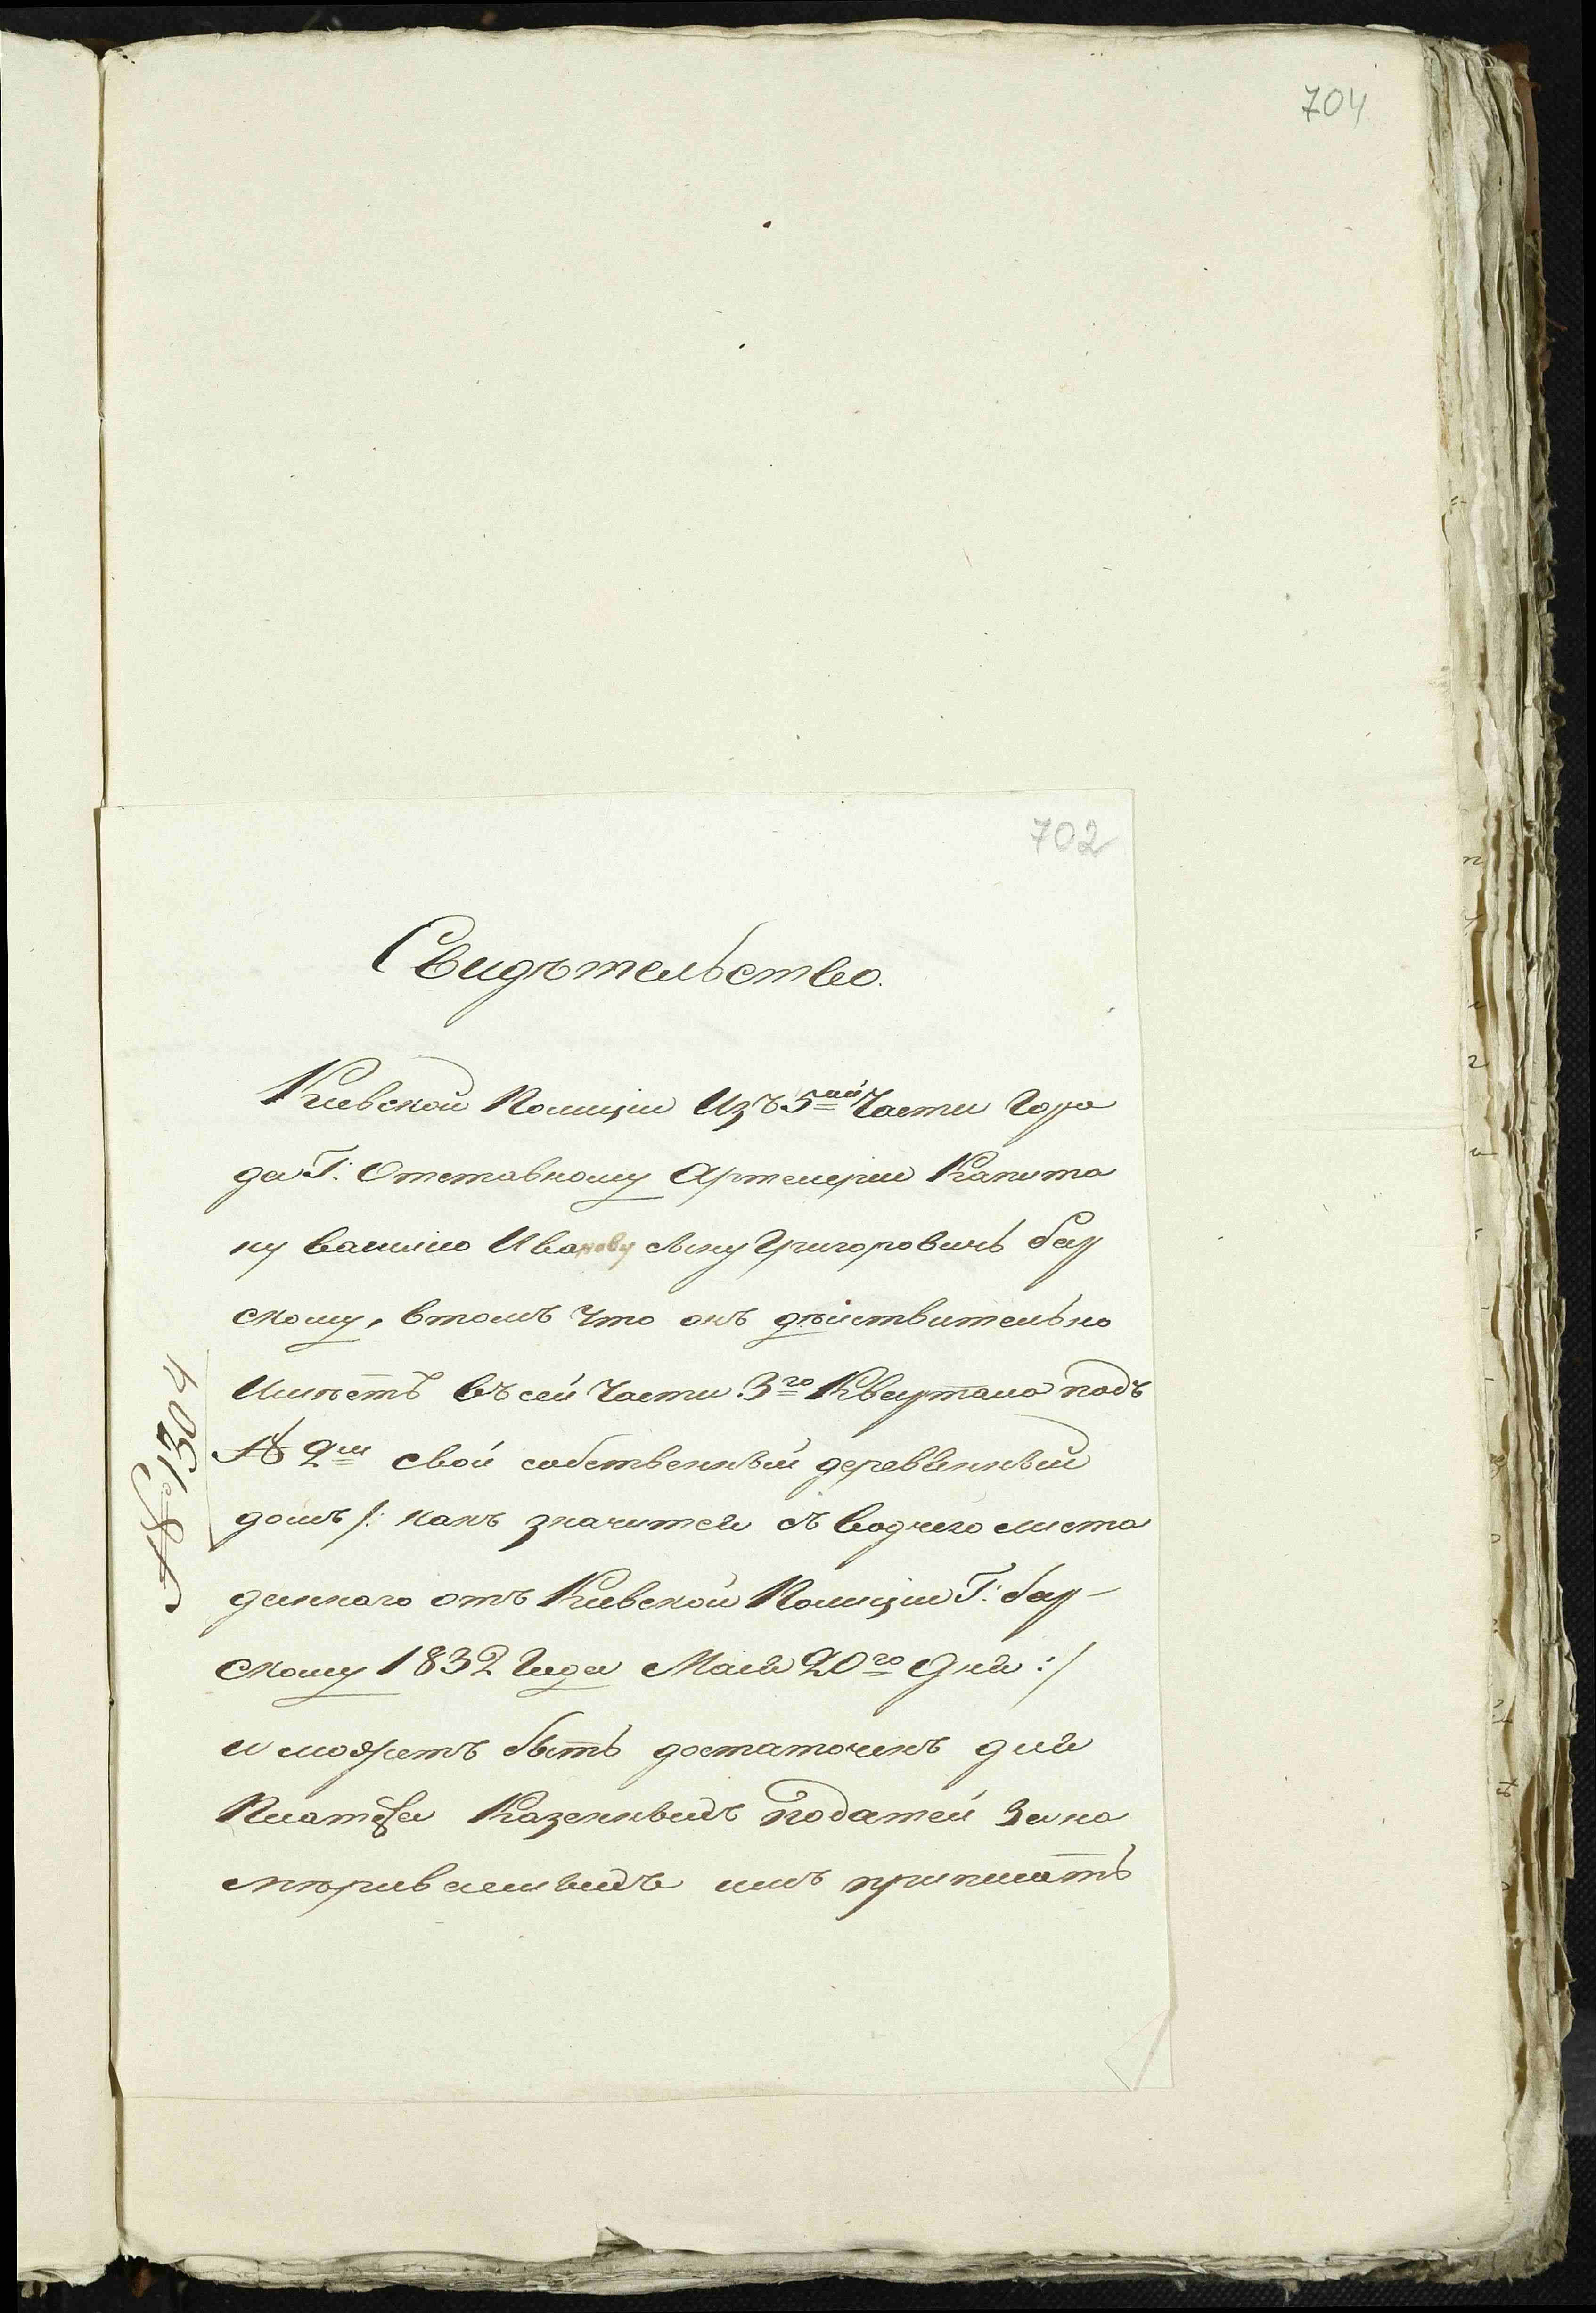 704
702
Свидѣтельство.
Киевской Полиции Изъ 5ной Части Горо
да Г: Отставному Артелерии Капита
ну Василию Иванову сыну Григоровичь бар
скому, втомъ что онъ дѣйствительно
Имѣетъ въ сей Части 3го Квартала подъ
№ 2м свой собственный деревянный
домъ /: какъ значится съ водчего листа
данного отъ Киевской Полиции Г: бар-
скому 1832 Года Мая 20го Дня :/
и можетъ быть достаточенъ для
Платежа Казенныхъ податей За на
мѣриваемыхъ имъ приписать
№ 1304